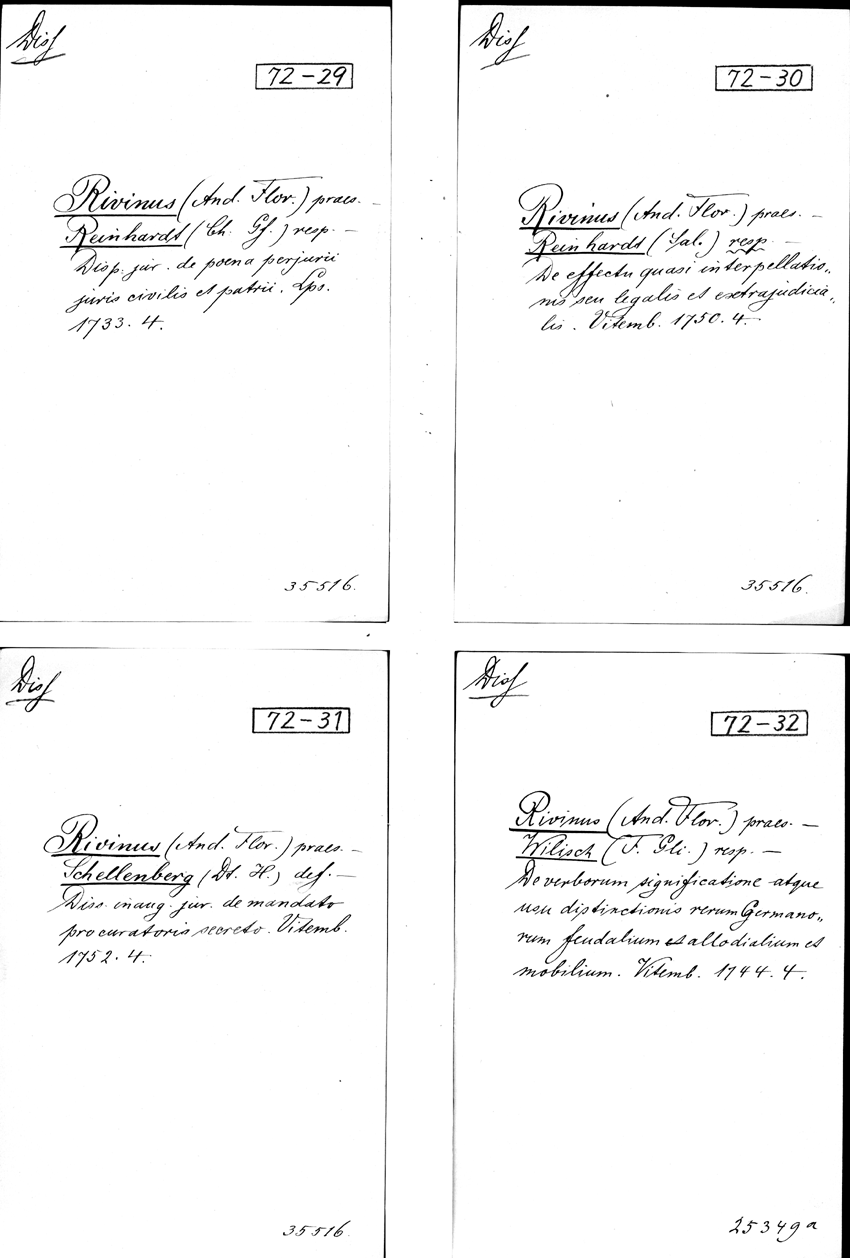 Diss
72-29
Rivinus (And. Flor.) praes. —
Reinhardt (Ch. Gf.) resp. —
Disp. jur. de poena perjurii
juris civilis et patrii. Lps.
1733. 4.
35516.
Diss
72-30
Rivinus (And. Flor.) praes. —
Reinhardt (Sal.) resp. —
De effectu quasi interpellatio„
nis seu legalis et extrajudicia„
lis. Vitemb. 1750. 4.
35516.
Diss
72-31
Rivinus (And. Flor.) praes. —
Schellenberg (Dt. H.) def. —
Diss. inaug. jur. de mandato
procuratoris secreto. Vitemb.
1752. 4.
35516.
Diss
72-32
Rivinus (And. Flor.) praes. —
Wilisch (F. Gli.) resp. —
De verborum significatione atque
usu distinctionis rerum Germano„
rum feudalium et allodialium et
mobilium. Vitemb. 1744. 4.
25349a